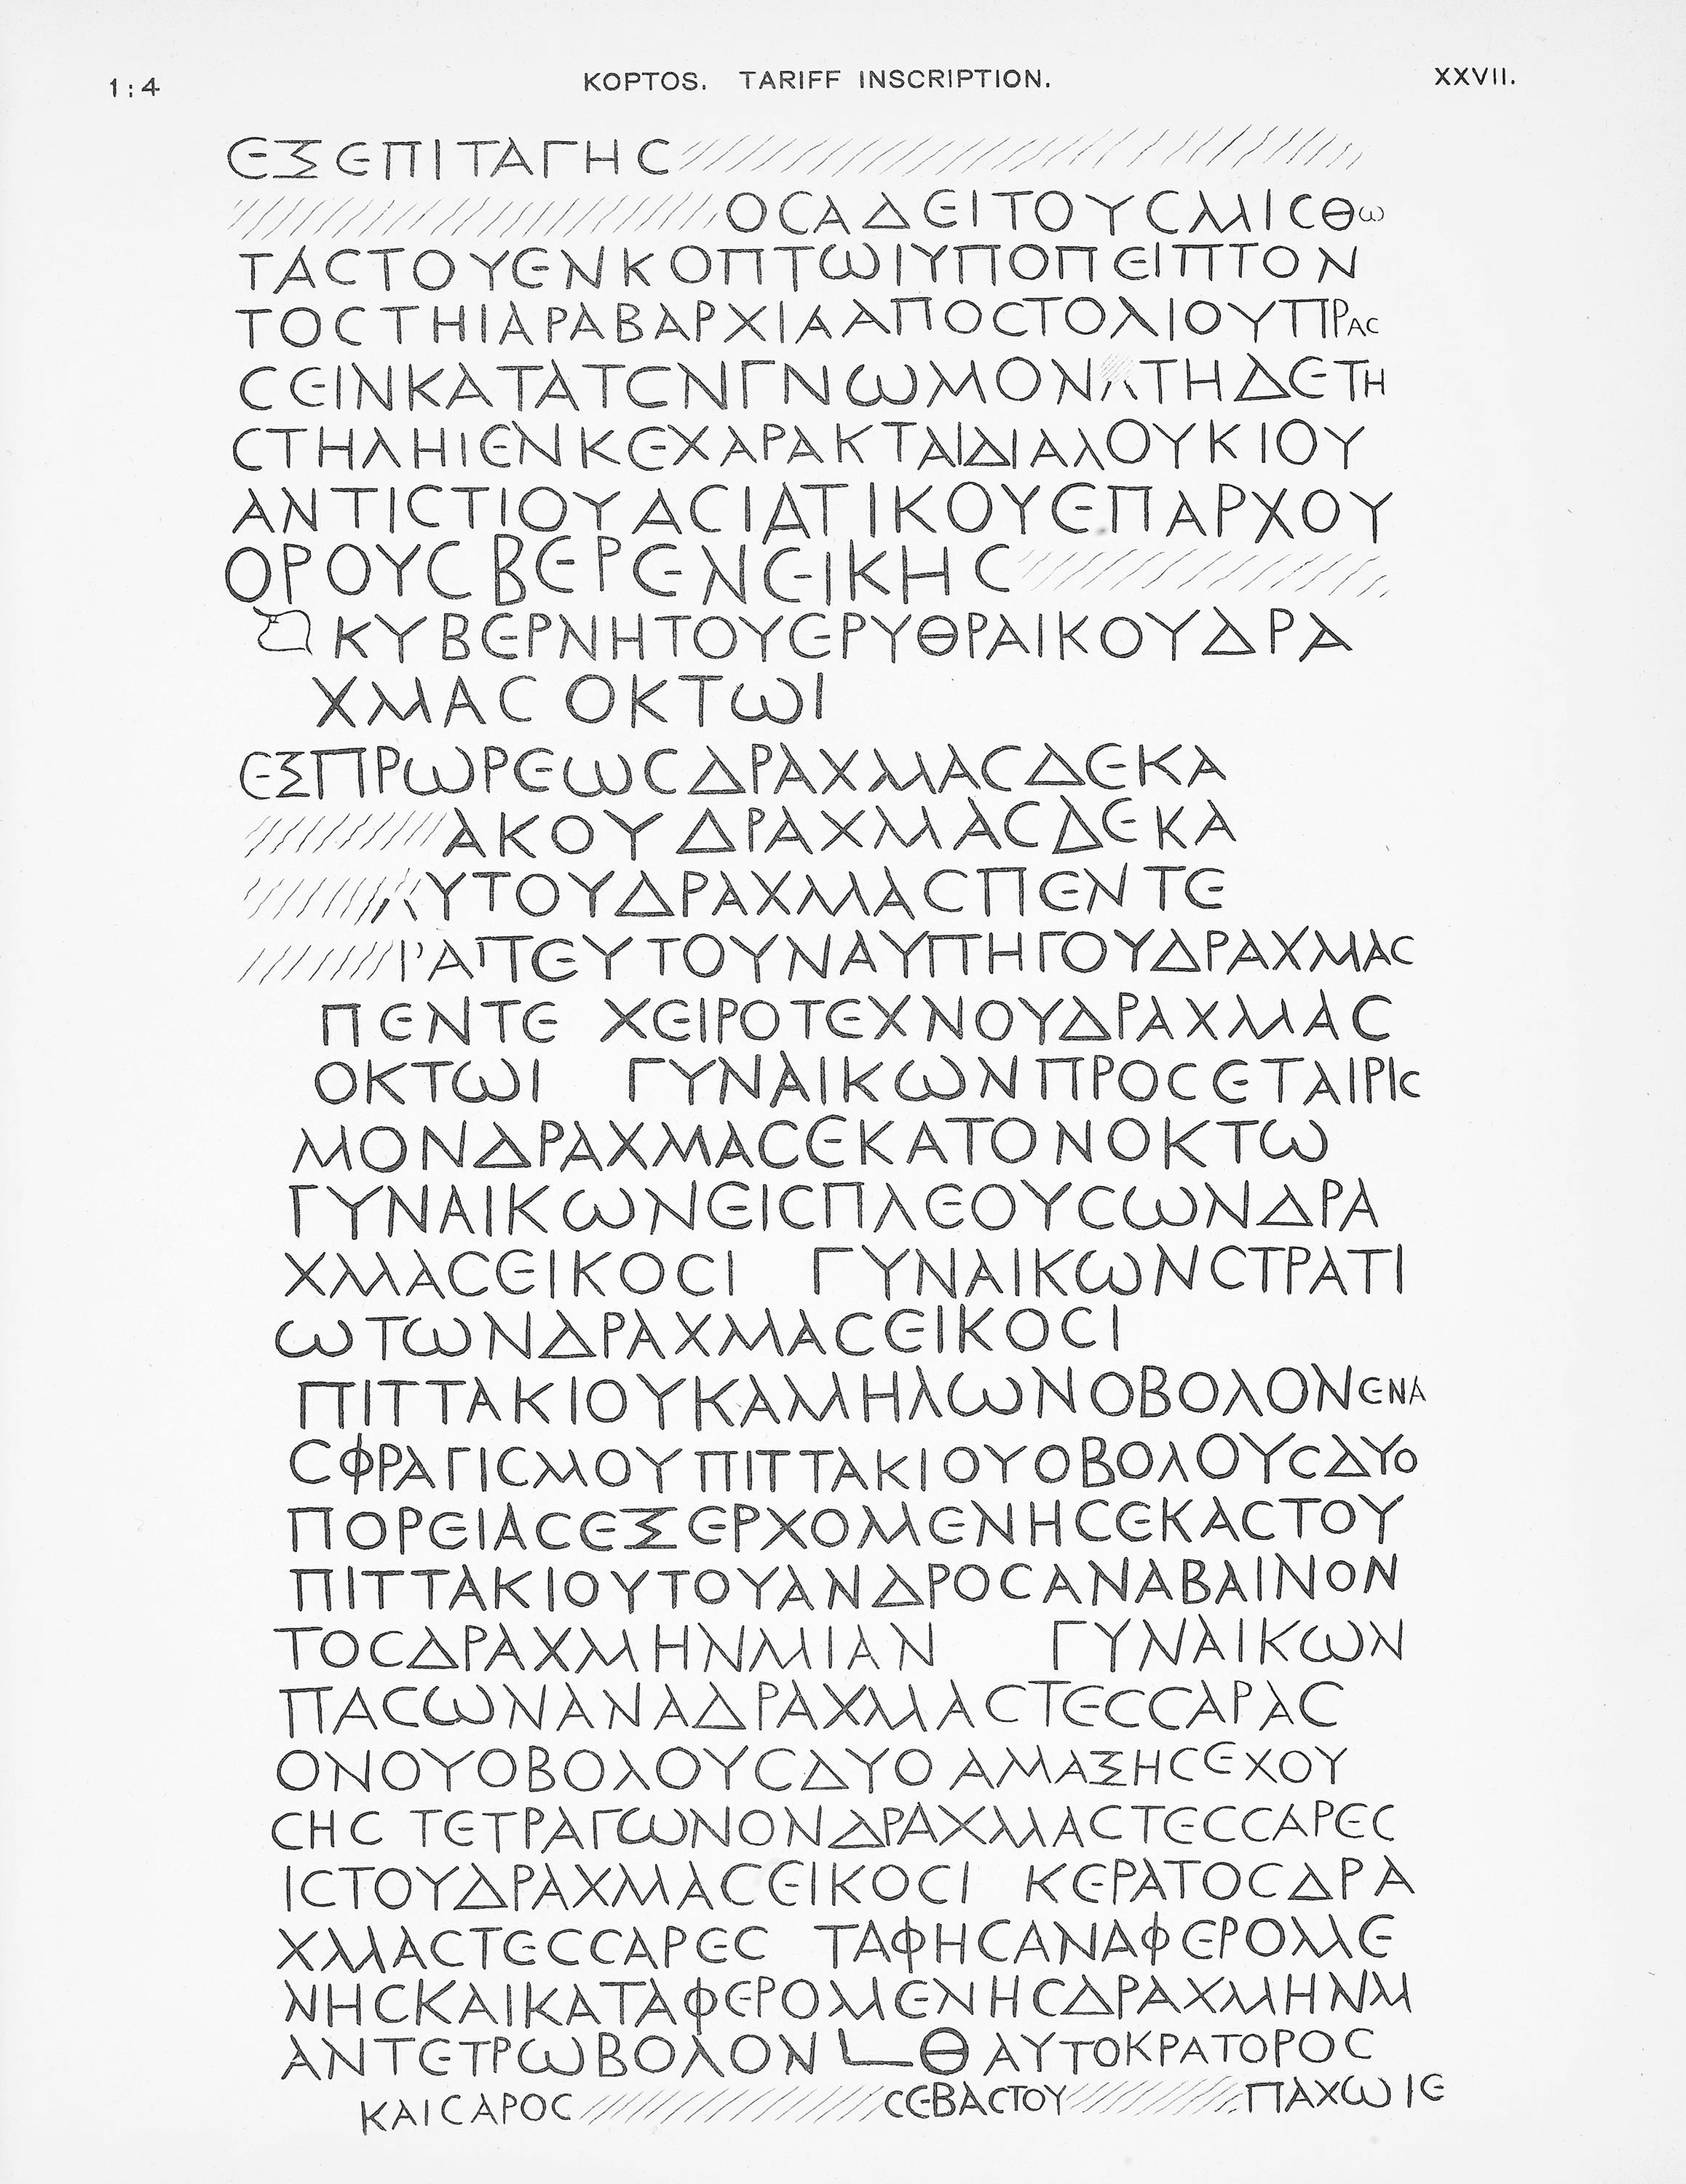 1:4 KOPTOS. TARIFF INSCRIPTION. XXVII.
ΕΞΕΠΙΤΑΓΗC
ΟCΑΔΕΙΤΟΥCΜΙCΘω
ΤΑCΤΟΥΕΝΚΟΠΤωΙΥΠΟΠΕΙΠΤΟΝ
ΤΟCΤΗΙΑΡΑΒΑΡΧΙΑΑΠΟCΤΟΛΙΟΥΠΡΑC
CΕΙΝΚΑΤΑΤCΝΓΝωΜΟΝΑΤΗΔΕΤΗ
CΤΗΛΗΙΕΝΚΕΧΑΡΑΚΤΑΙΔΙΑΛΟΥΚΙΟΥ
ΑΝΤΙCΤΙΟΥΑCΙΑΤΙΚΟΥΕΠΑΡΧΟΥ
ΟΡΟΥCΒΕΡΕΝΕΙΚΗC
ΚΥΒΕΡΝΗΤΟΥΕΡΥΘΡΑΙΚΟΥΔΡΑ
ΧΜΑC ΟΚΤωΙ
ΕΞΠΡωΡΕωCΔΡΑΧΜΑCΔΕΚΑ
ΑΚΟΥ ΔΡΑΧΜΑCΔΕΚΑ
ΥΤΟΥΔΡΑΧΜΑCΠΕΝΤΕ
ΡΑΠΕΥΤΟΥΝΑΥΠΗΓΟΥΔΡΑΧΜΑC
ΠΕΝΤΕ ΧΕΙΡΟΤΕΧΝΟΥΔΡΑΧΜΑC
ΟΚΤωΙ ΓΥΝΑΙΚωΝΠΡΟCΕΤΑΙΡΙC
ΜΟΝΔΡΑΧΜΑCΕΚΑΤΟΝΟΚΤω
ΓΥΝΑΙΚωΝΕΙCΠΛΕΟΥCωΝΔΡΑ
ΧΜΑCΕΙΚΟCΙ ΓΥΝΑΙΚωΝCΤΡΑΤΙ
ωΤωΝΔΡΑΧΜΑCΕΙΚΟCΙ
ΠΙΤΤΑΚΙΟΥΚΑΜΗΛωΝΟΒΟΛΟΝΕΝΑ
CΦΡΑΓΙCΜΟΥΠΙΤΤΑΚΙΟΥΟΒΟΛΟΥCΔΥΟ
ΠΟΡΕΙΑCΕΞΕΡΧΟΜΕΝΗCΕΚΑCΤΟΥ
ΠΙΤΤΑΚΙΟΥΤΟΥΑΝΔΡΟCΑΝΑΒΑΙΝΟΝ
ΤΟCΔΡΑΧΜΗΝΜΙΑΝ ΓΥΝΑΙΚωΝ
ΠΑCωΝΑΝΑΔΡΑΧΜΑCΤΕCCΑΡΑC
ΟΝΟΥΟΒΟΛΟΥCΔΥΟ ΑΜΑΞΗCΕΧΟΥ
CΗC ΤΕΤΡΑΓωΝΟΝΔΡΑΧΜΑCΤΕCCΑΡΕC
ΙCΤΟΥΔΡΑΧΜΑCΕΙΚΟCΙ ΚΕΡΑΤΟCΔΡΑ
ΧΜΑCΤΕCCΑΡΕC ΤΑΦΗCΑΝΑΦΕΡΟΜΕ
ΝΗCΚΑΙΚΑΤΑΦΕΡΟΜΕΝΗCΔΡΑΧΜΗΝΜ
ΑΝΤΕΤΡωΒΟΛΟΝ L Θ ΑΥΤΟΚΡΑΤΟΡΟC
ΚΑΙCΑΡΟC CΕΒΑCΤΟΥ ΠΑΧω ΙΕ